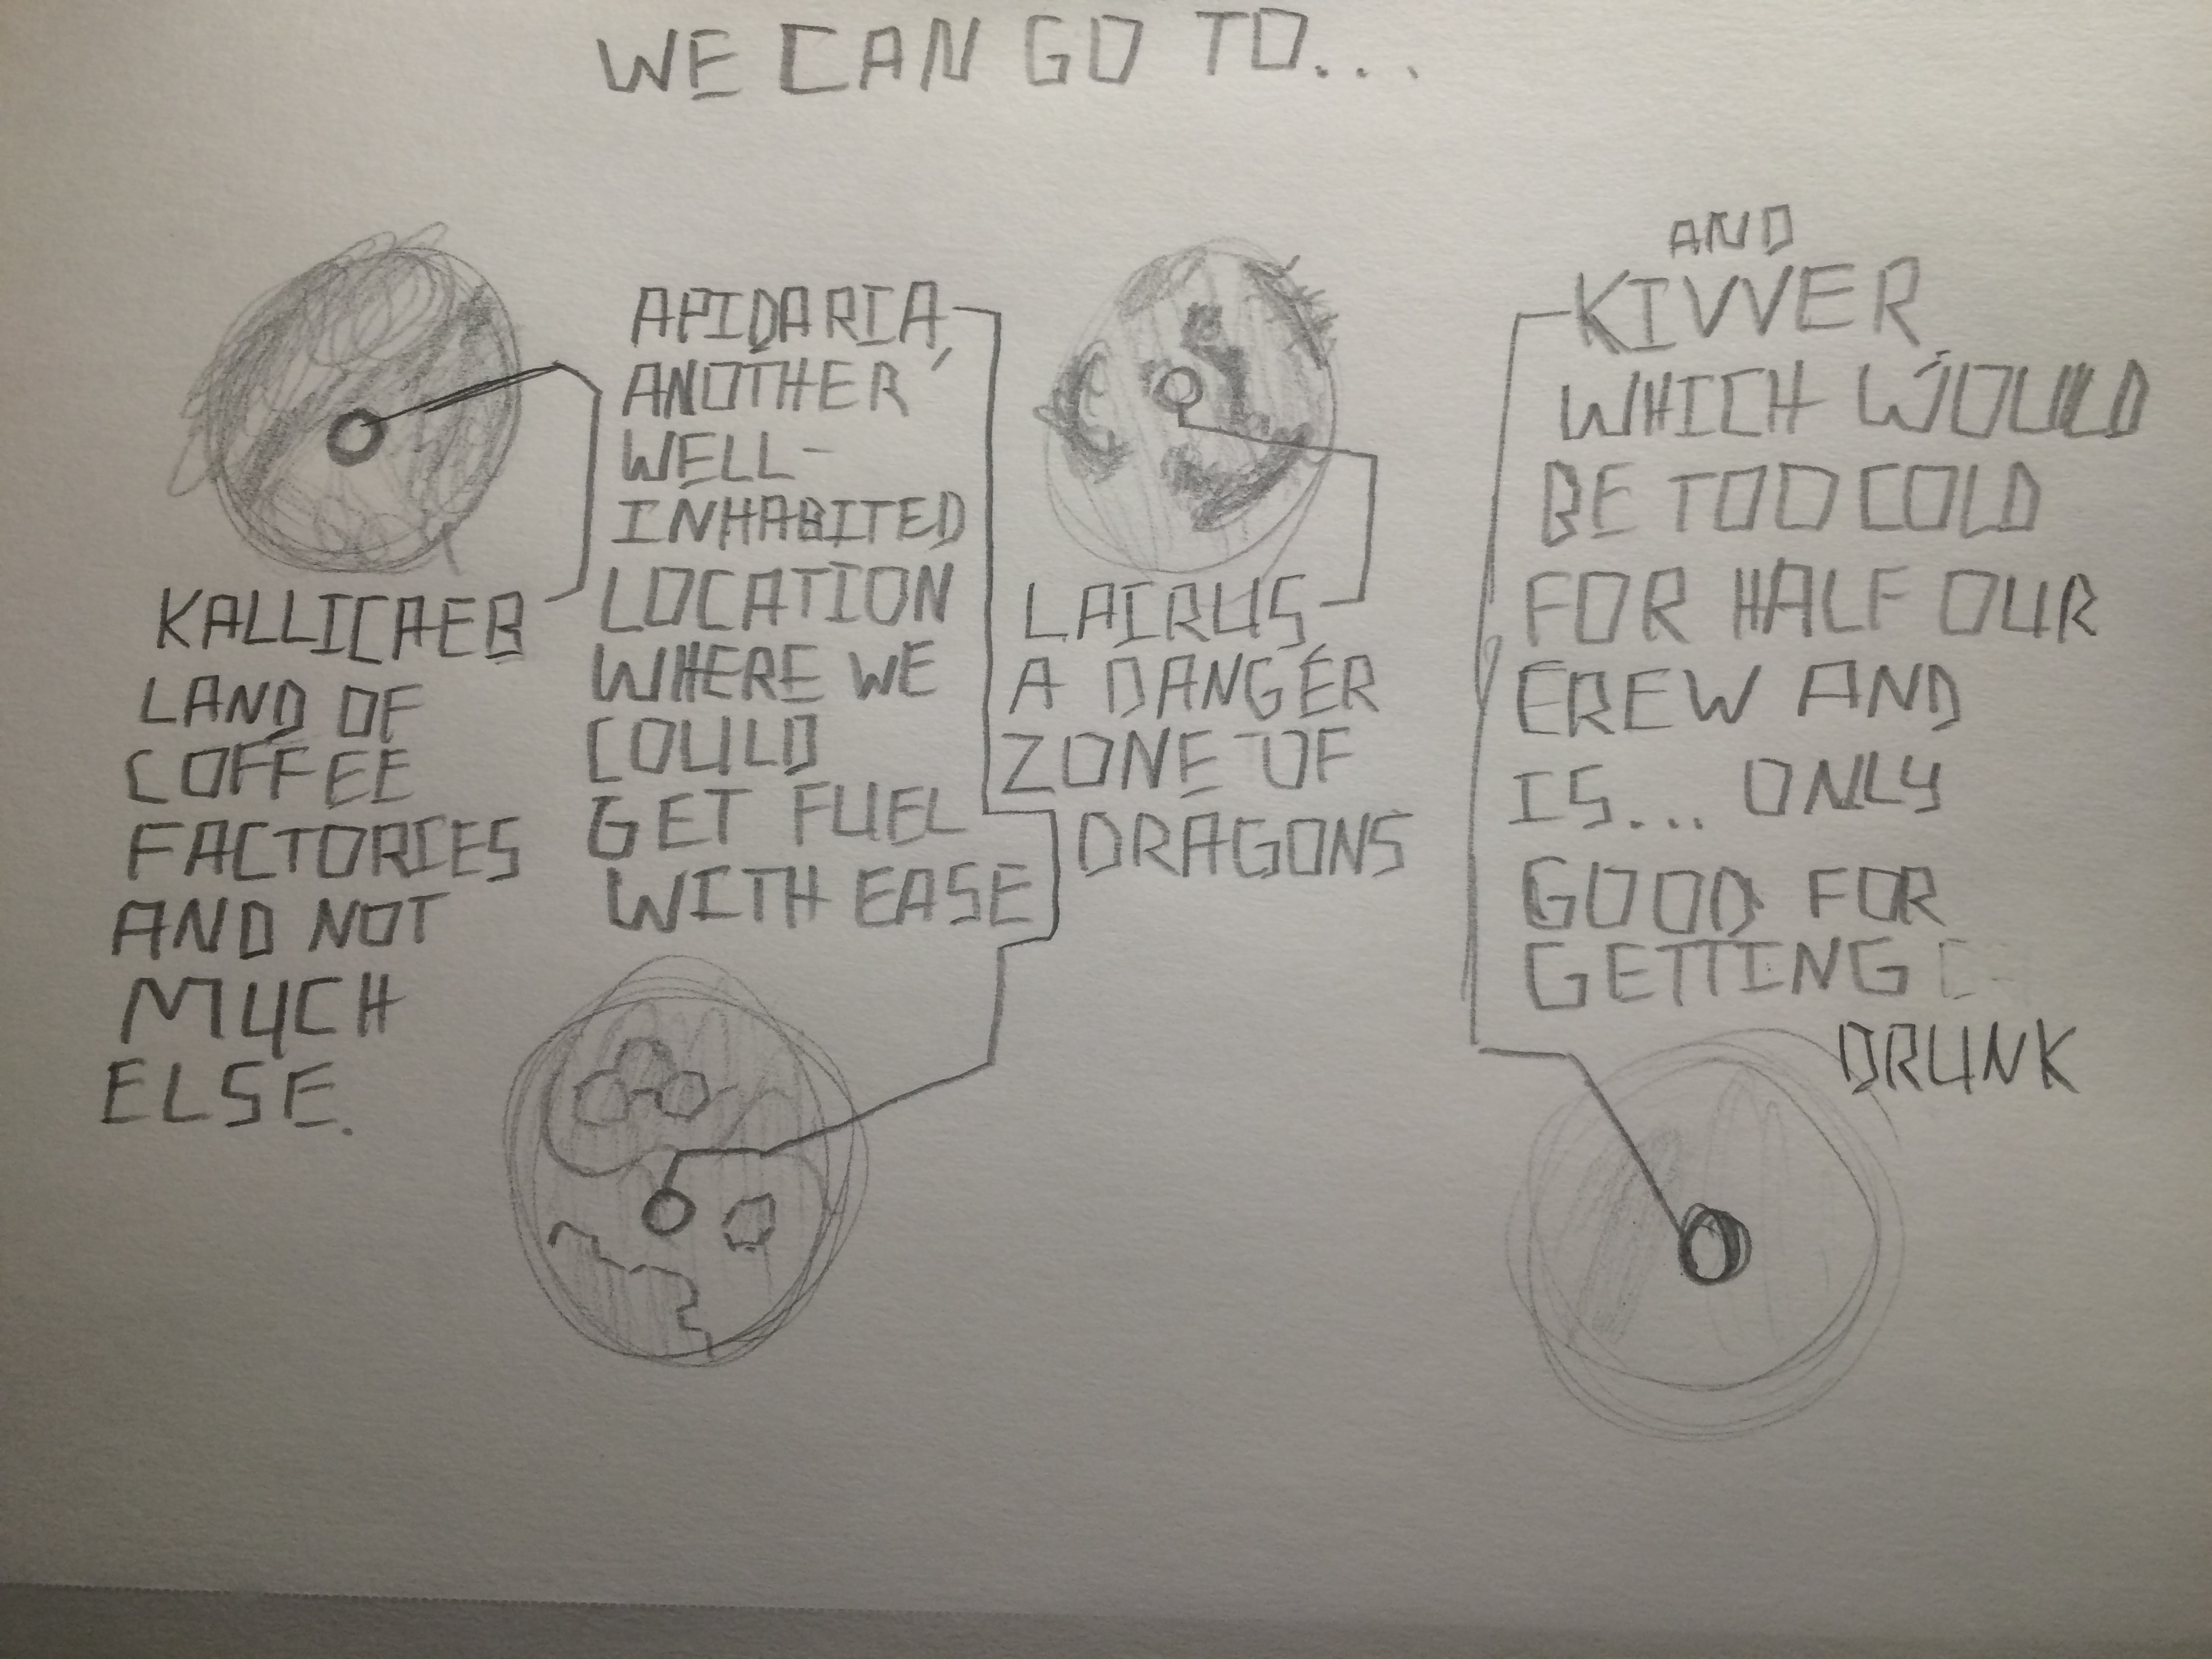 WE CAN GO TO...
KALLICAEB
LAND OF
COFFEE
FACTORIES
AND NOT
MUCH
ELSE.
APIDARIA,
ANOTHER
WELL-
INHABITED
LOCATION
WHERE WE
COULD
GET FUEL
WITH EASE
LAIRUS,
A DANGER
ZONE OF
DRAGONS
AND
KIVVER,
WHICH WOULD
BE TOO COLD
FOR HALF OUR
CREW AND
IS... ONLY
GOOD FOR
GETTING
DRUNK